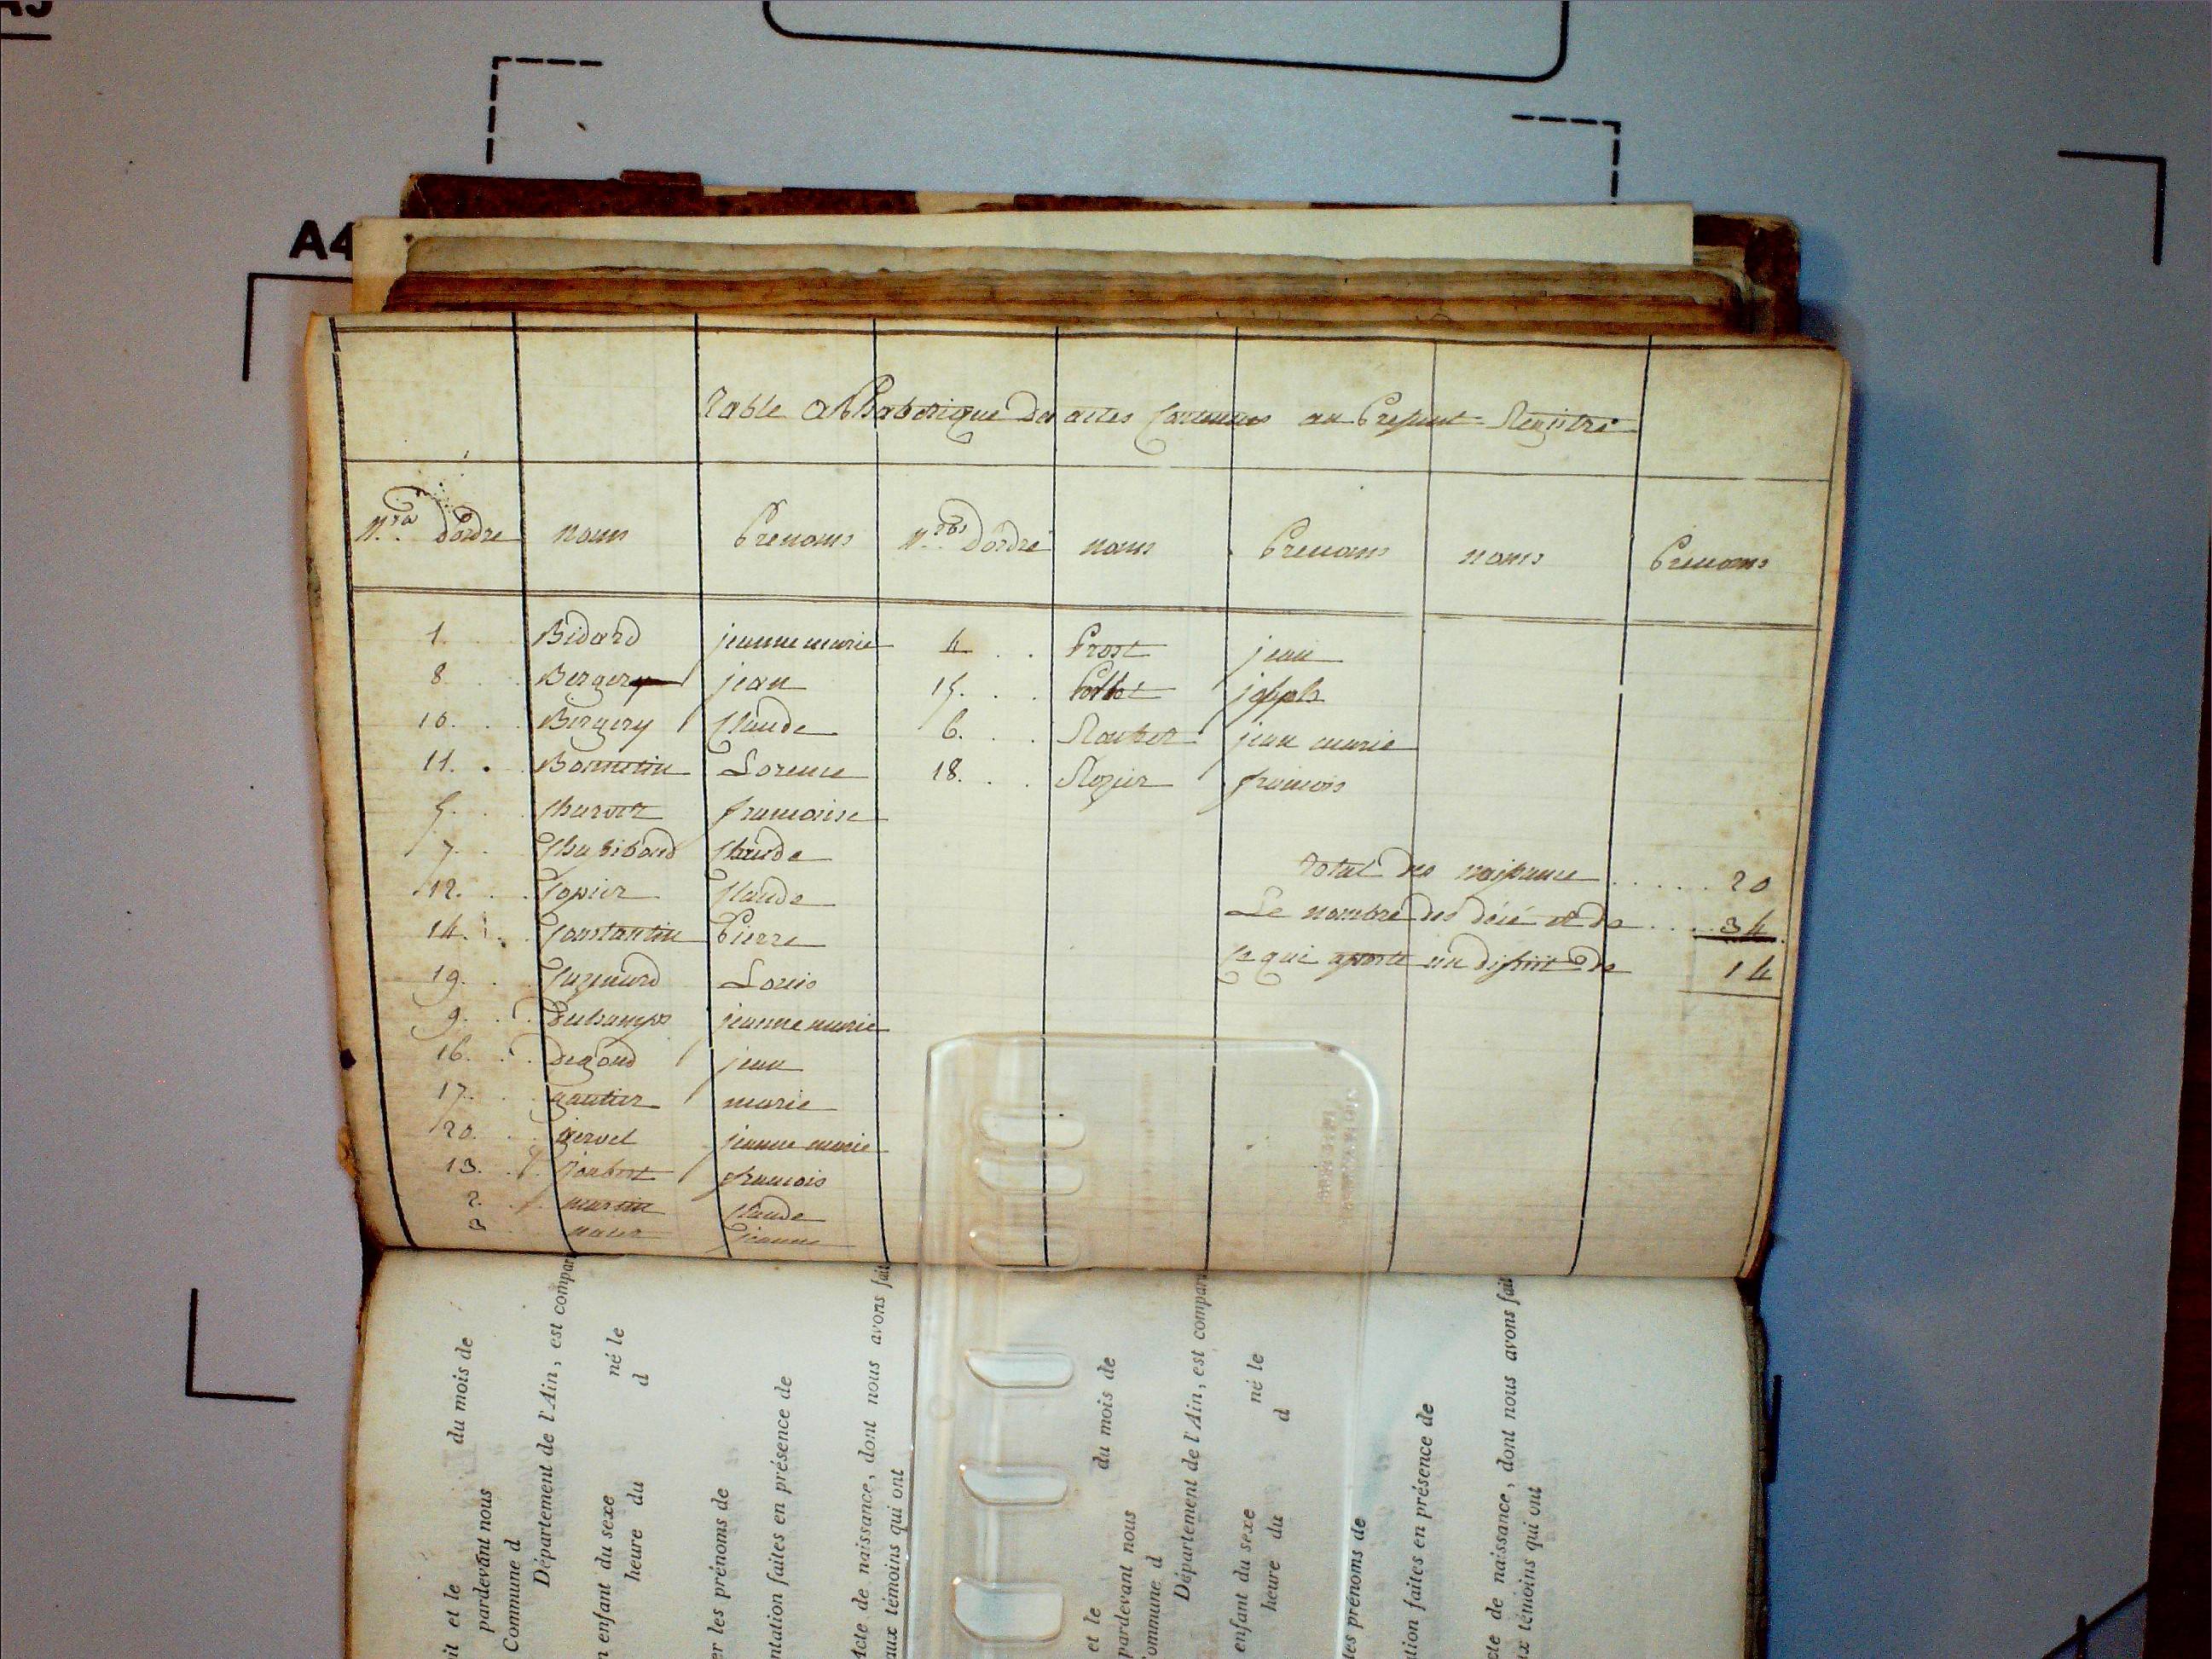 A3
A4
Table Alphabetique Des actes Contenues au Present Registre
N.ros Dordre noms Prenoms N.ros Dordre noms Prenoms noms Prenoms
1. Bidard jeanne marie 4 . Prost jean
8 Bergery jean 15. . joseph
10. Bergery Claude 6. jean marie
11. Bonnetin Lorence 18. Rozier francois
5. Charvet francoise
7 Chabiboud Claude
12. Copier Claude
14. Constantin Pierre
19. Cuzinard Louis
9. Duchamps jeanne marie
16. Degoud jean
17. gautier marie
20. gervet jeanne marie
13. Joubert francois
2. martin Claude
3 jeanne
Total des naissance ...... 20
Le nombre des décé et de .... 34
Ce qui aporte un difisit De 14
it et le du mois de
pardevant nous
Commune d
Département de l'Ain, est compar
n enfant du sexe né le
heure du d
er les prénoms de
ntation faites en présence de
Acte de naissance, dont nous avons fait
aux témoins qui ont
et le du mois de
pardevant nous
ommune d
Département de l'Ain, est compar
enfant du sexe né le
heure du d
les prénoms de
tion faites en présence de
cte de naissance, dont nous avons fait
ux témoins qui ont